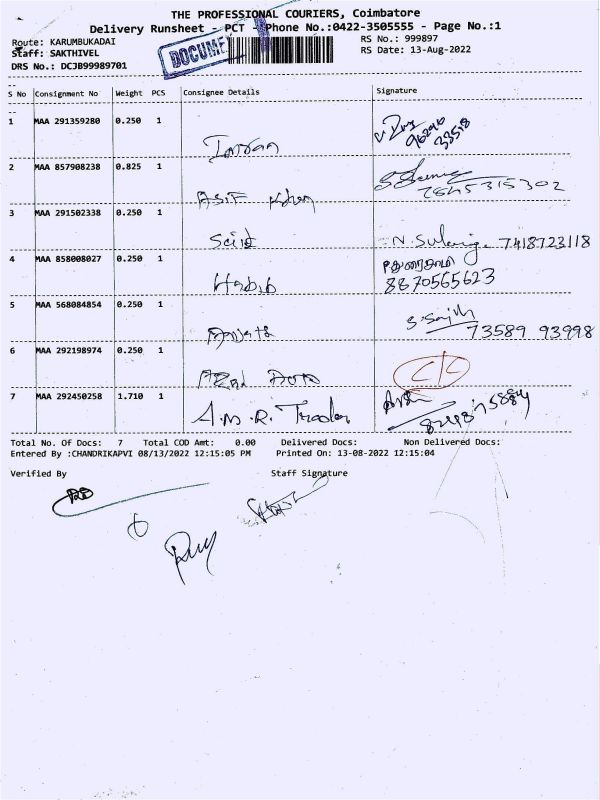 THE PROFESSIONAL COURIERS, Coimbatore
Delivery Runsheet - PCT - Phone No.:0422-3505555 - Page No.:1
Route: KARUMBUKADAI
RS No.: 999897
Staff: SAKTHIVEL
RS Date: 13-Aug-2022
DRS No.: DCJB99989701
DOCUME
S No Consignment No Weight PCS Consignee Details Signature
1 MAA 291359280 0.250 1
Imran
96296
33518
2 MAA 857908238 0.825 1
Asif Khan 7845315302
3 MAA 291502338 0.250 1
Said N. 7418723118
4 MAA 858008027 0.250 1
Habib 8870565623
5 MAA 568084854 0.250 1
S. Sajith
73589 93998
6 MAA 292198974 0.250 1
C/C
7 MAA 292450258 1.710 1
A.M.R. Trader
Total No. Of Docs: 7 Total COD Amt: 0.00 Delivered Docs: Non Delivered Docs:
Entered By :CHANDRIKAPVI 08/13/2022 12:15:05 PM Printed On: 13-08-2022 12:15:04
Verified By Staff Signature